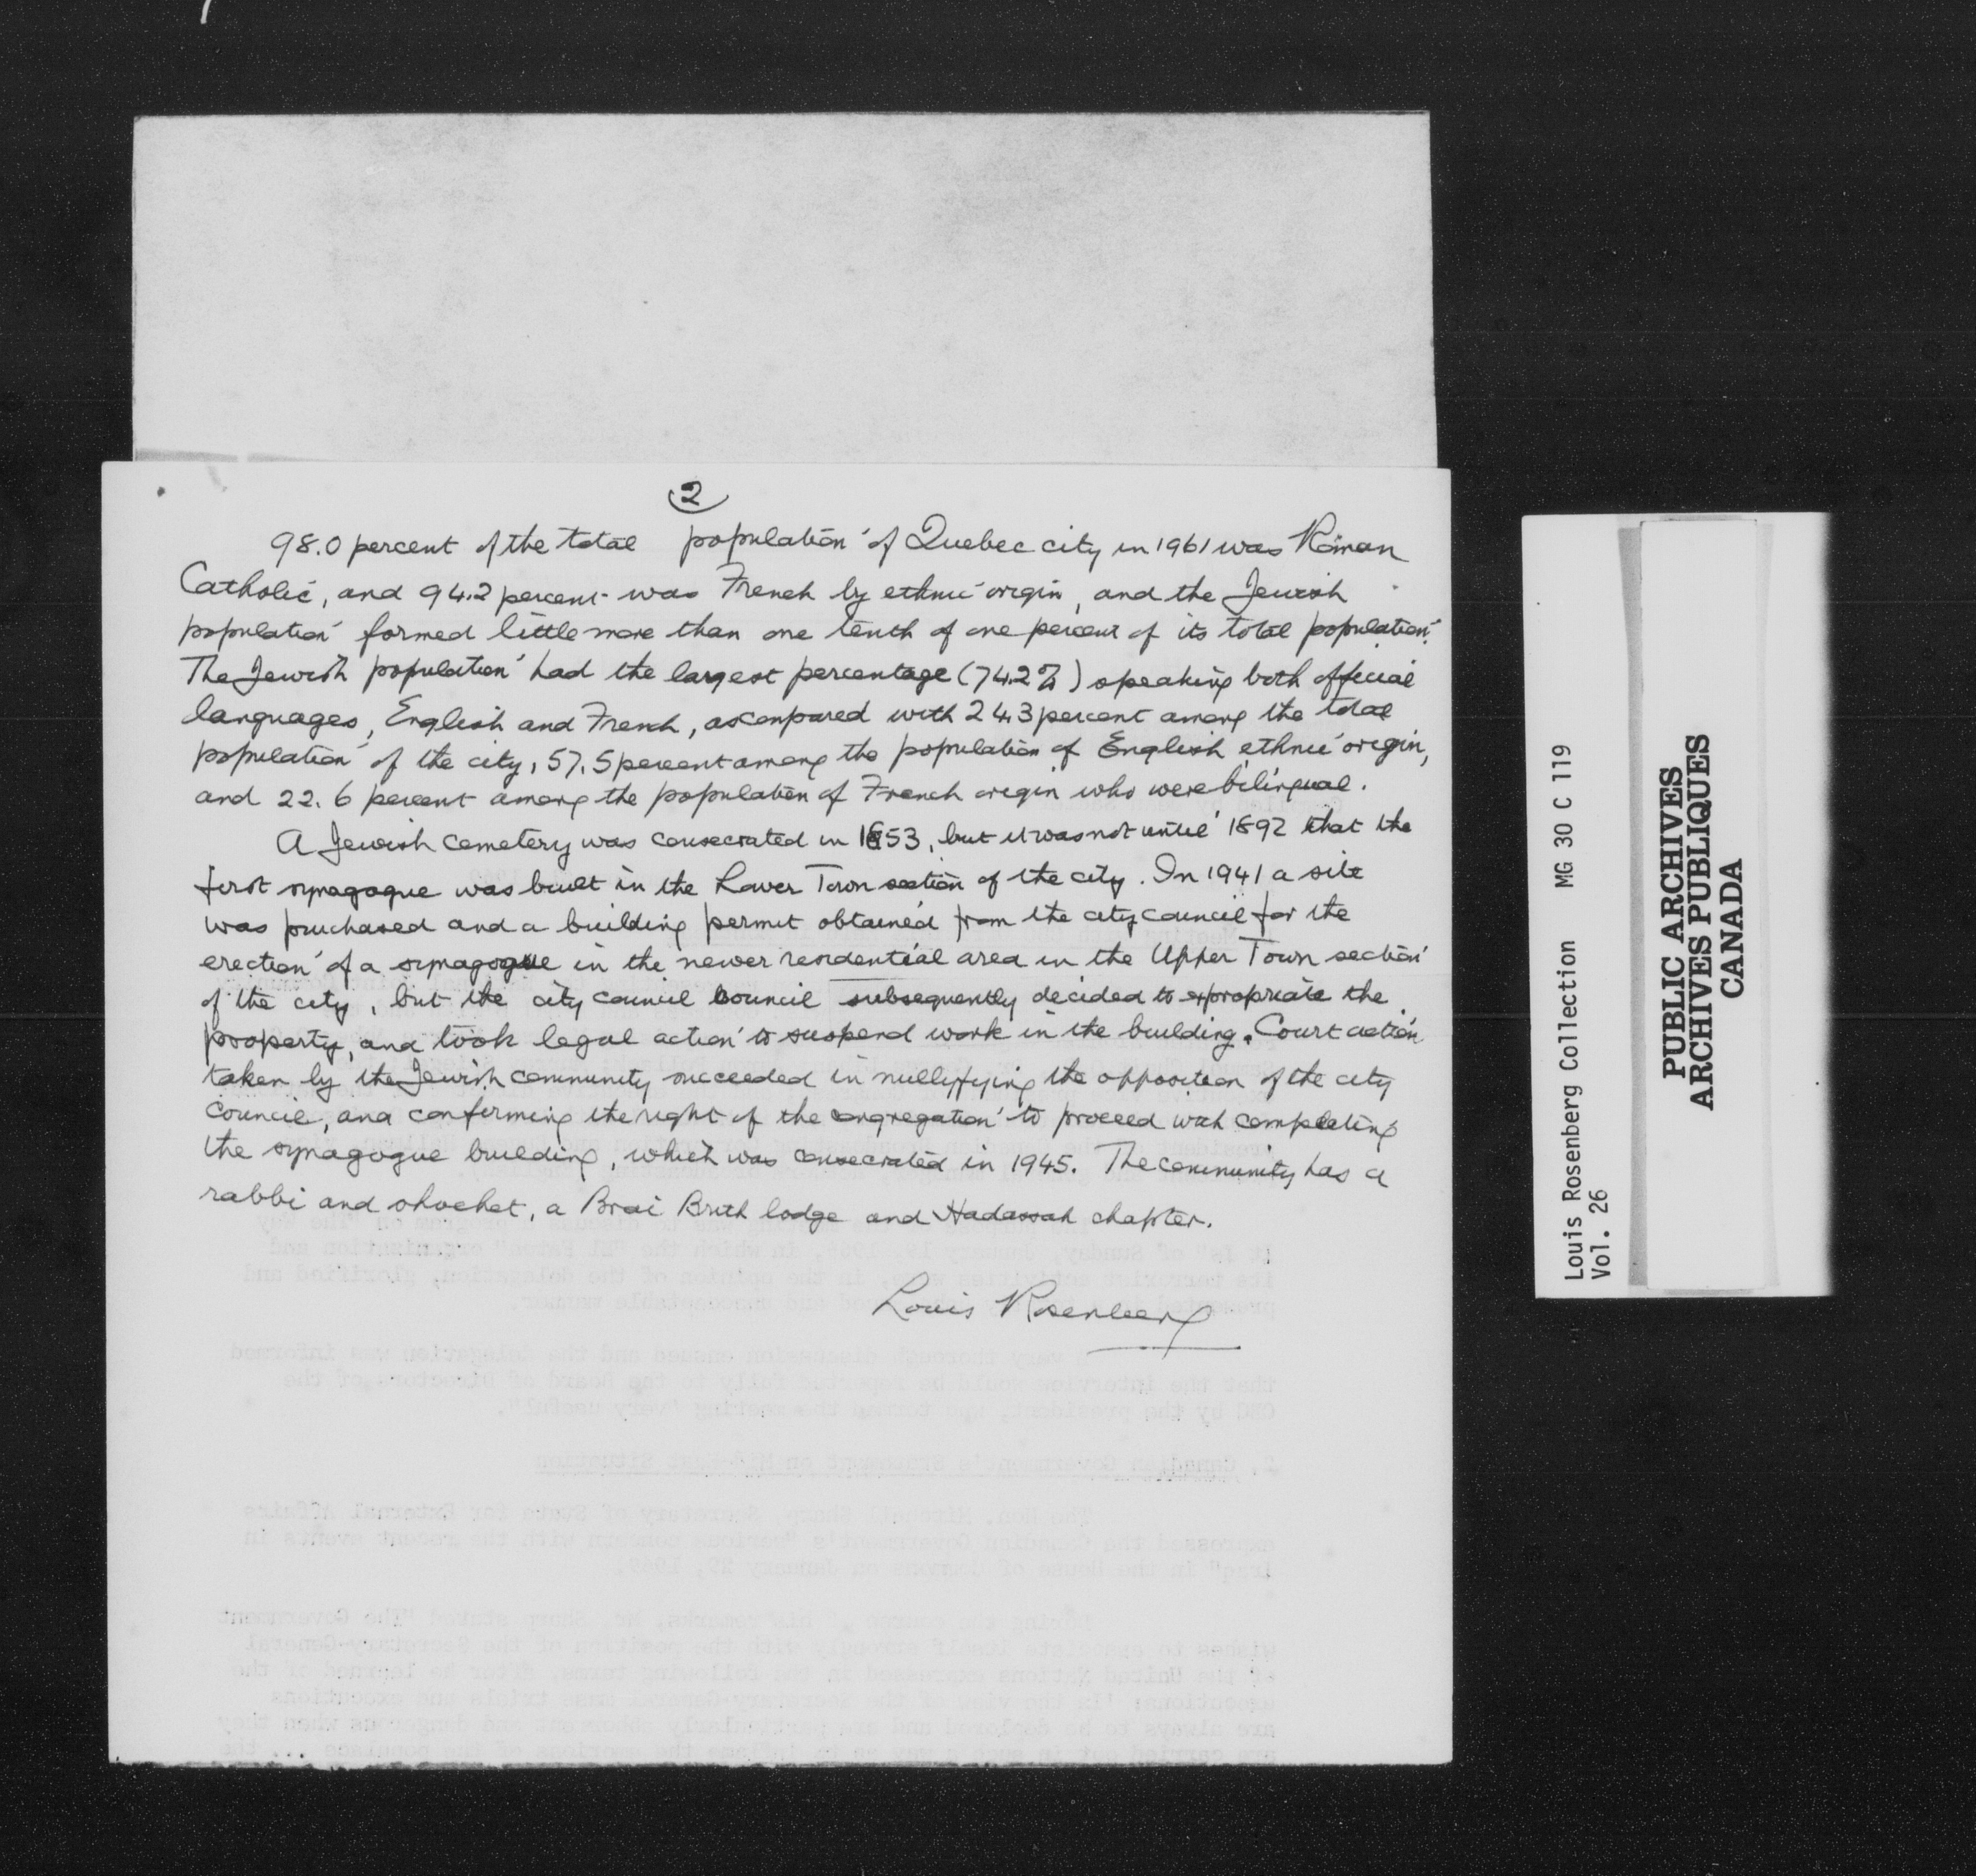 2
98.0 percent of the total population of Quebec city in 1961 was Roman
Catholic, and 94.2 percent was French by ethnic origin, and the Jewish
population formed little more than one tenth of one percent of its total population.
The Jewish population had the largest percentage (74.2%) speaking both official
languages, English and French, as compared with 24.3 percent among the total
population of the city, 57.5 percent among the population of English ethnic origin,
and 22.6 percent among the population of French origin who were bilingual.
A Jewish cemetery was consecrated in 1853, but it was not until 1892 that the
first synagogue was built in the Lower Town section of the city. In 1941 a site
was purchased and a building permit obtained from the city council for the
erection of a synagogue in the newer residential area in the Upper Town section
of the city, but the city council council subsequently decided to expropriate the
property, and took legal action to suspend work in the building. Court action
taken by the Jewish community succeeded in nullyfying the opposition of the city
council, and confirming the right of the congregation to proceed with completing
the synagogue building, which was consecrated in 1945. The community has a
rabbi and shochet, a Bnai Brith lodge and Hadassah chapter.
Louis Rosenberg
Louis Rosenberg Collection MG 30 C 119
Vol. 26
PUBLIC ARCHIVES
ARCHIVES PUBLIQUES
CANADA